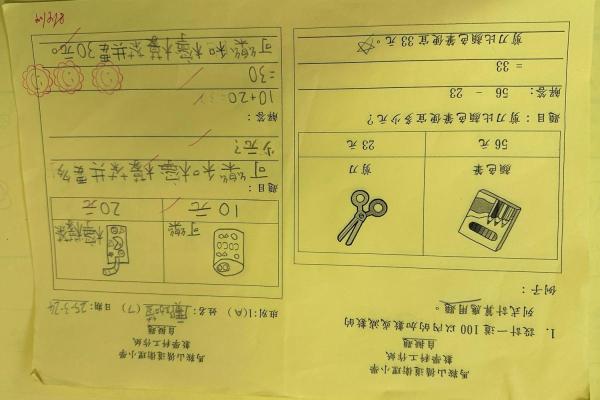 馬鞍山循道衛理小學
數學科工作紙
自擬題
1. 設計一道 100 以內的加數或減數的
列式計算應用題。
例子:
顏色筆
剪刀
56 元
23 元
題目:剪刀比顏色筆便宜多少元?
解答: 56 - 23
= 33
剪刀比顏色筆便宜 33 元。
馬鞍山循道衛理小學
數學科工作紙
自擬題
班別:1(A) 姓名: (7) 日期:25-3-24
可樂
檸檬茶
10 元
20 元
題目
可樂和檸檬茶共要多
少元?
解答:
10+20
=30
可樂和檸檬茶共要30元。